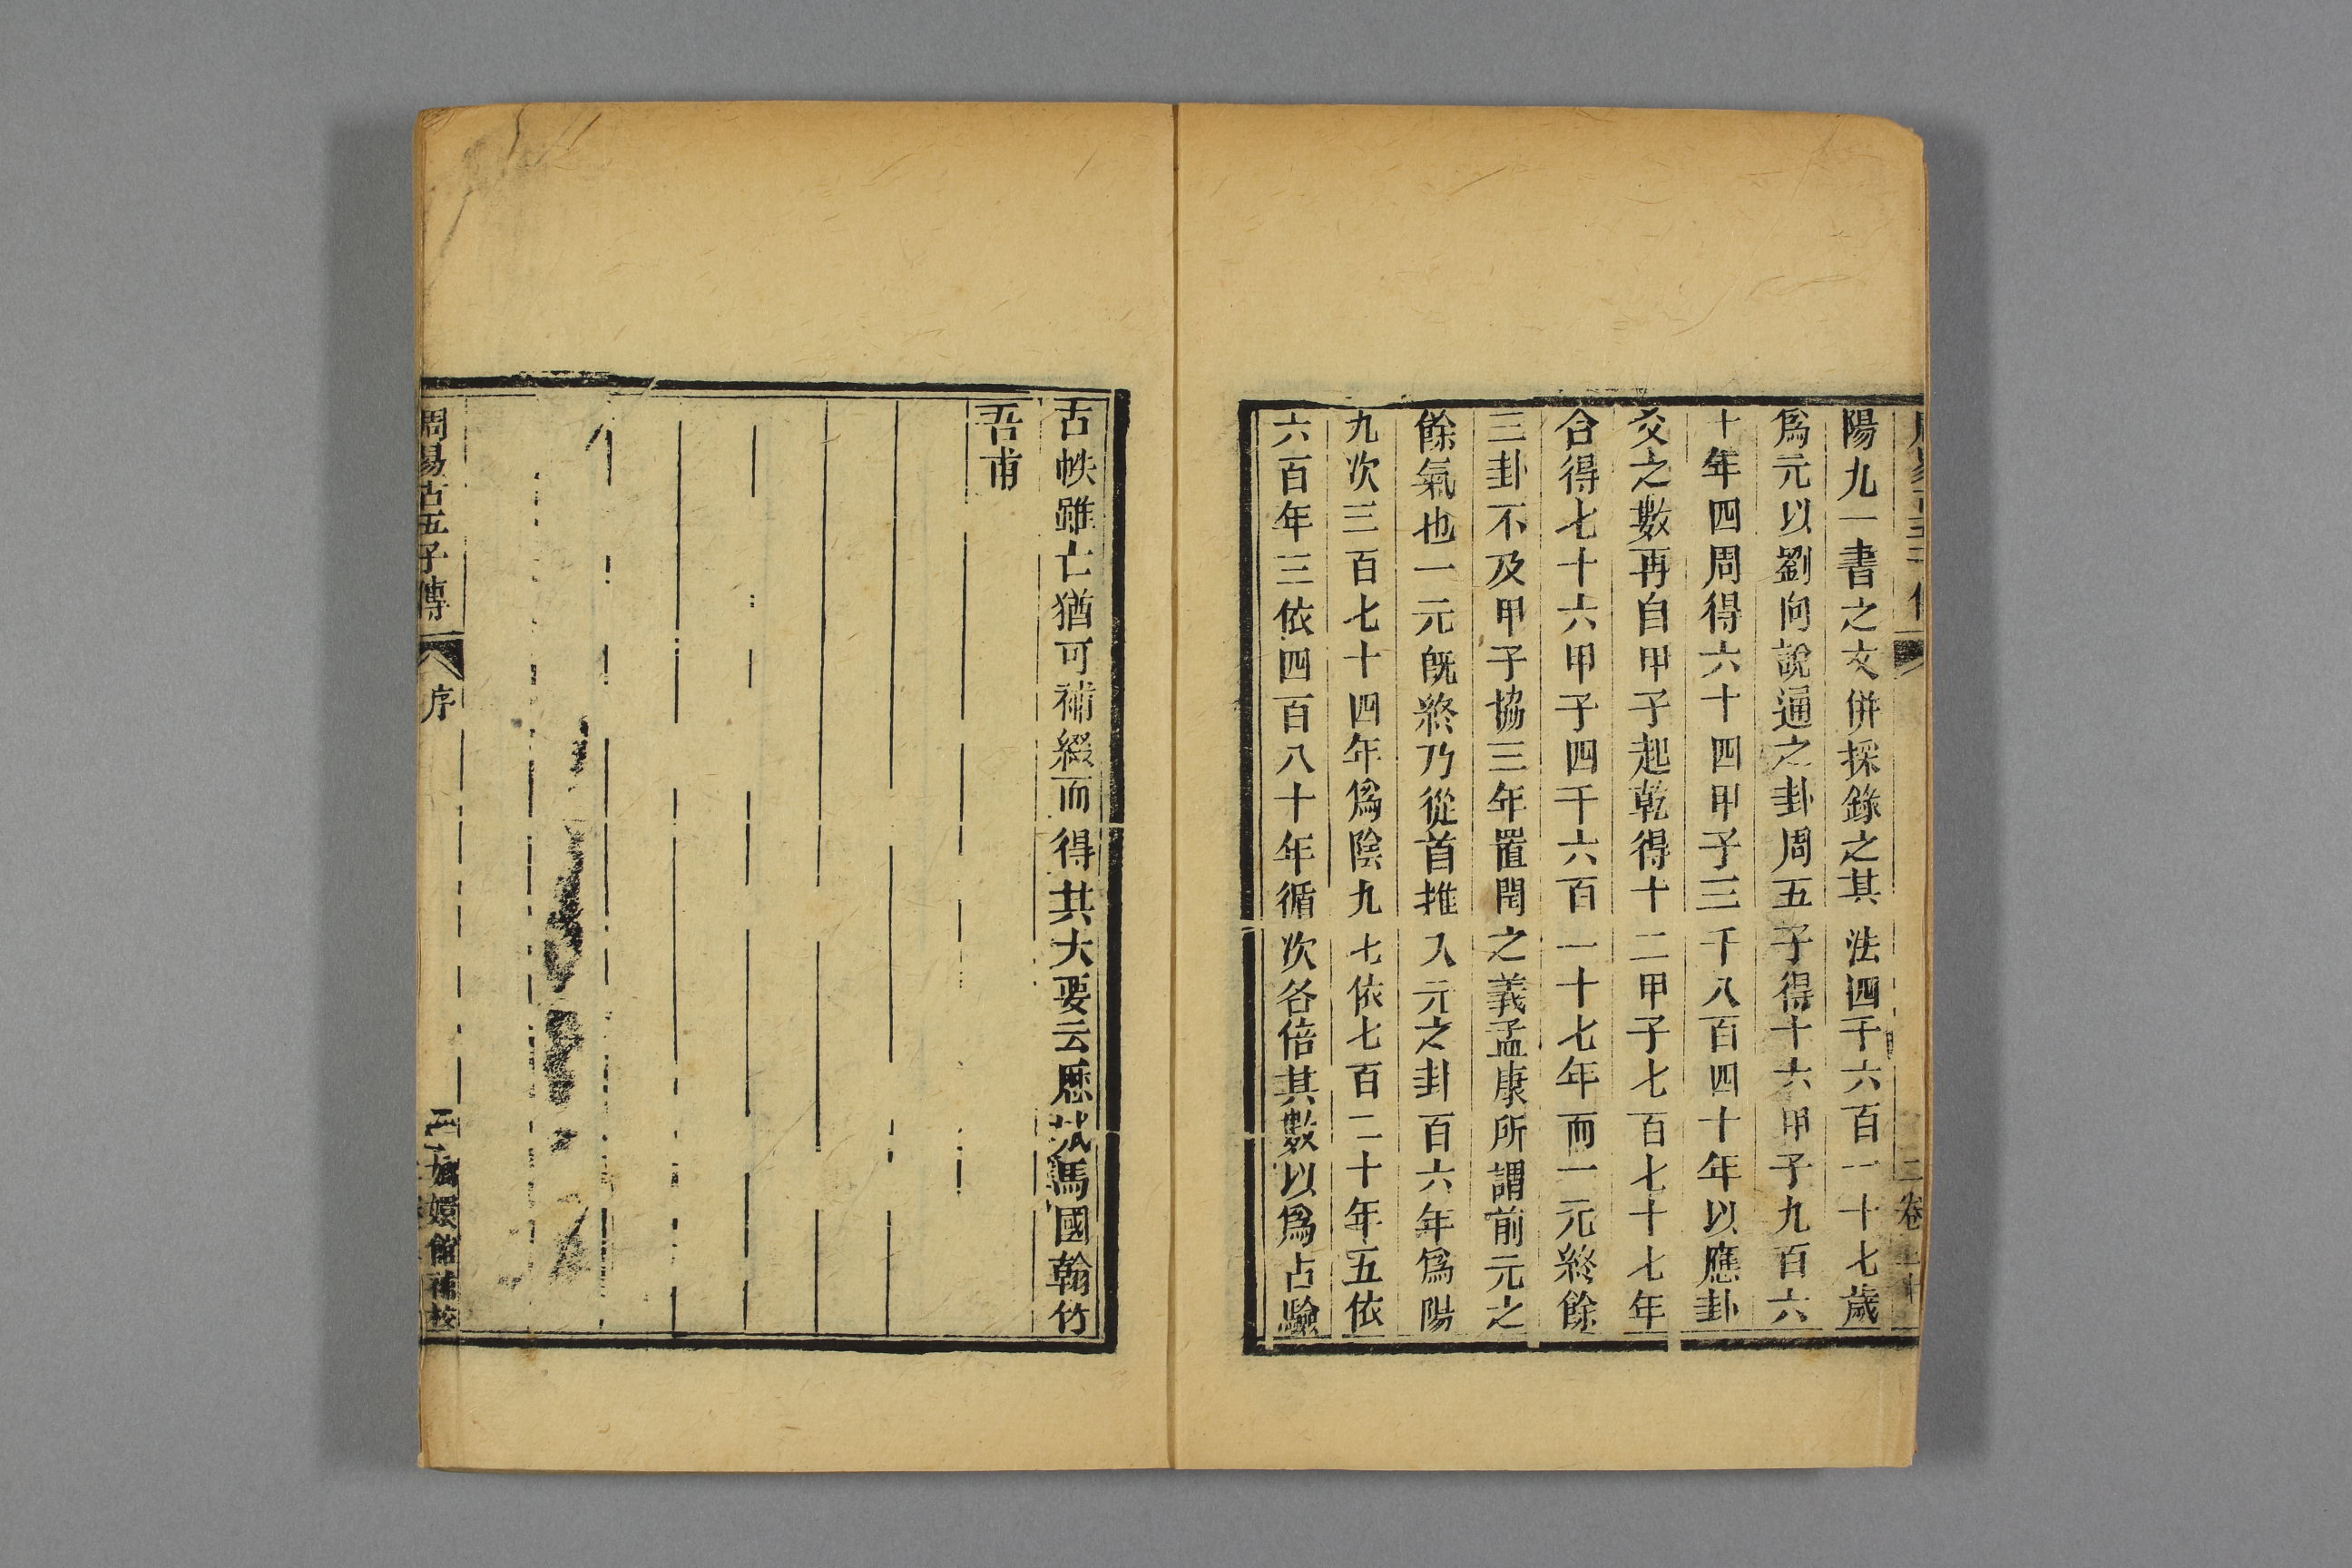 陽九一書之文併採錄之其法四千六百一十七歲
爲元以劉向說通之卦周五子得十六甲子九百六
十年四周得六十四甲子三千八百四十年以應卦
爻之數再自甲子起乾得十二甲子七百七十七年
合得七十六甲子四千六百一十七年而一元終餘
三卦不及甲子協三年置閏之義孟康所謂前元之
餘氣也一元旣終乃從首推入元之卦百六年爲陽
九次三百七十四年爲陰九七依七百二十年五依
六百年三依四百八十年循次各倍其數以爲占驗
古帙雖亡猶可補綴而得其大要云歷城馬國翰竹
吾甫
周易古五子傳
序
二
嫏嬛館補校